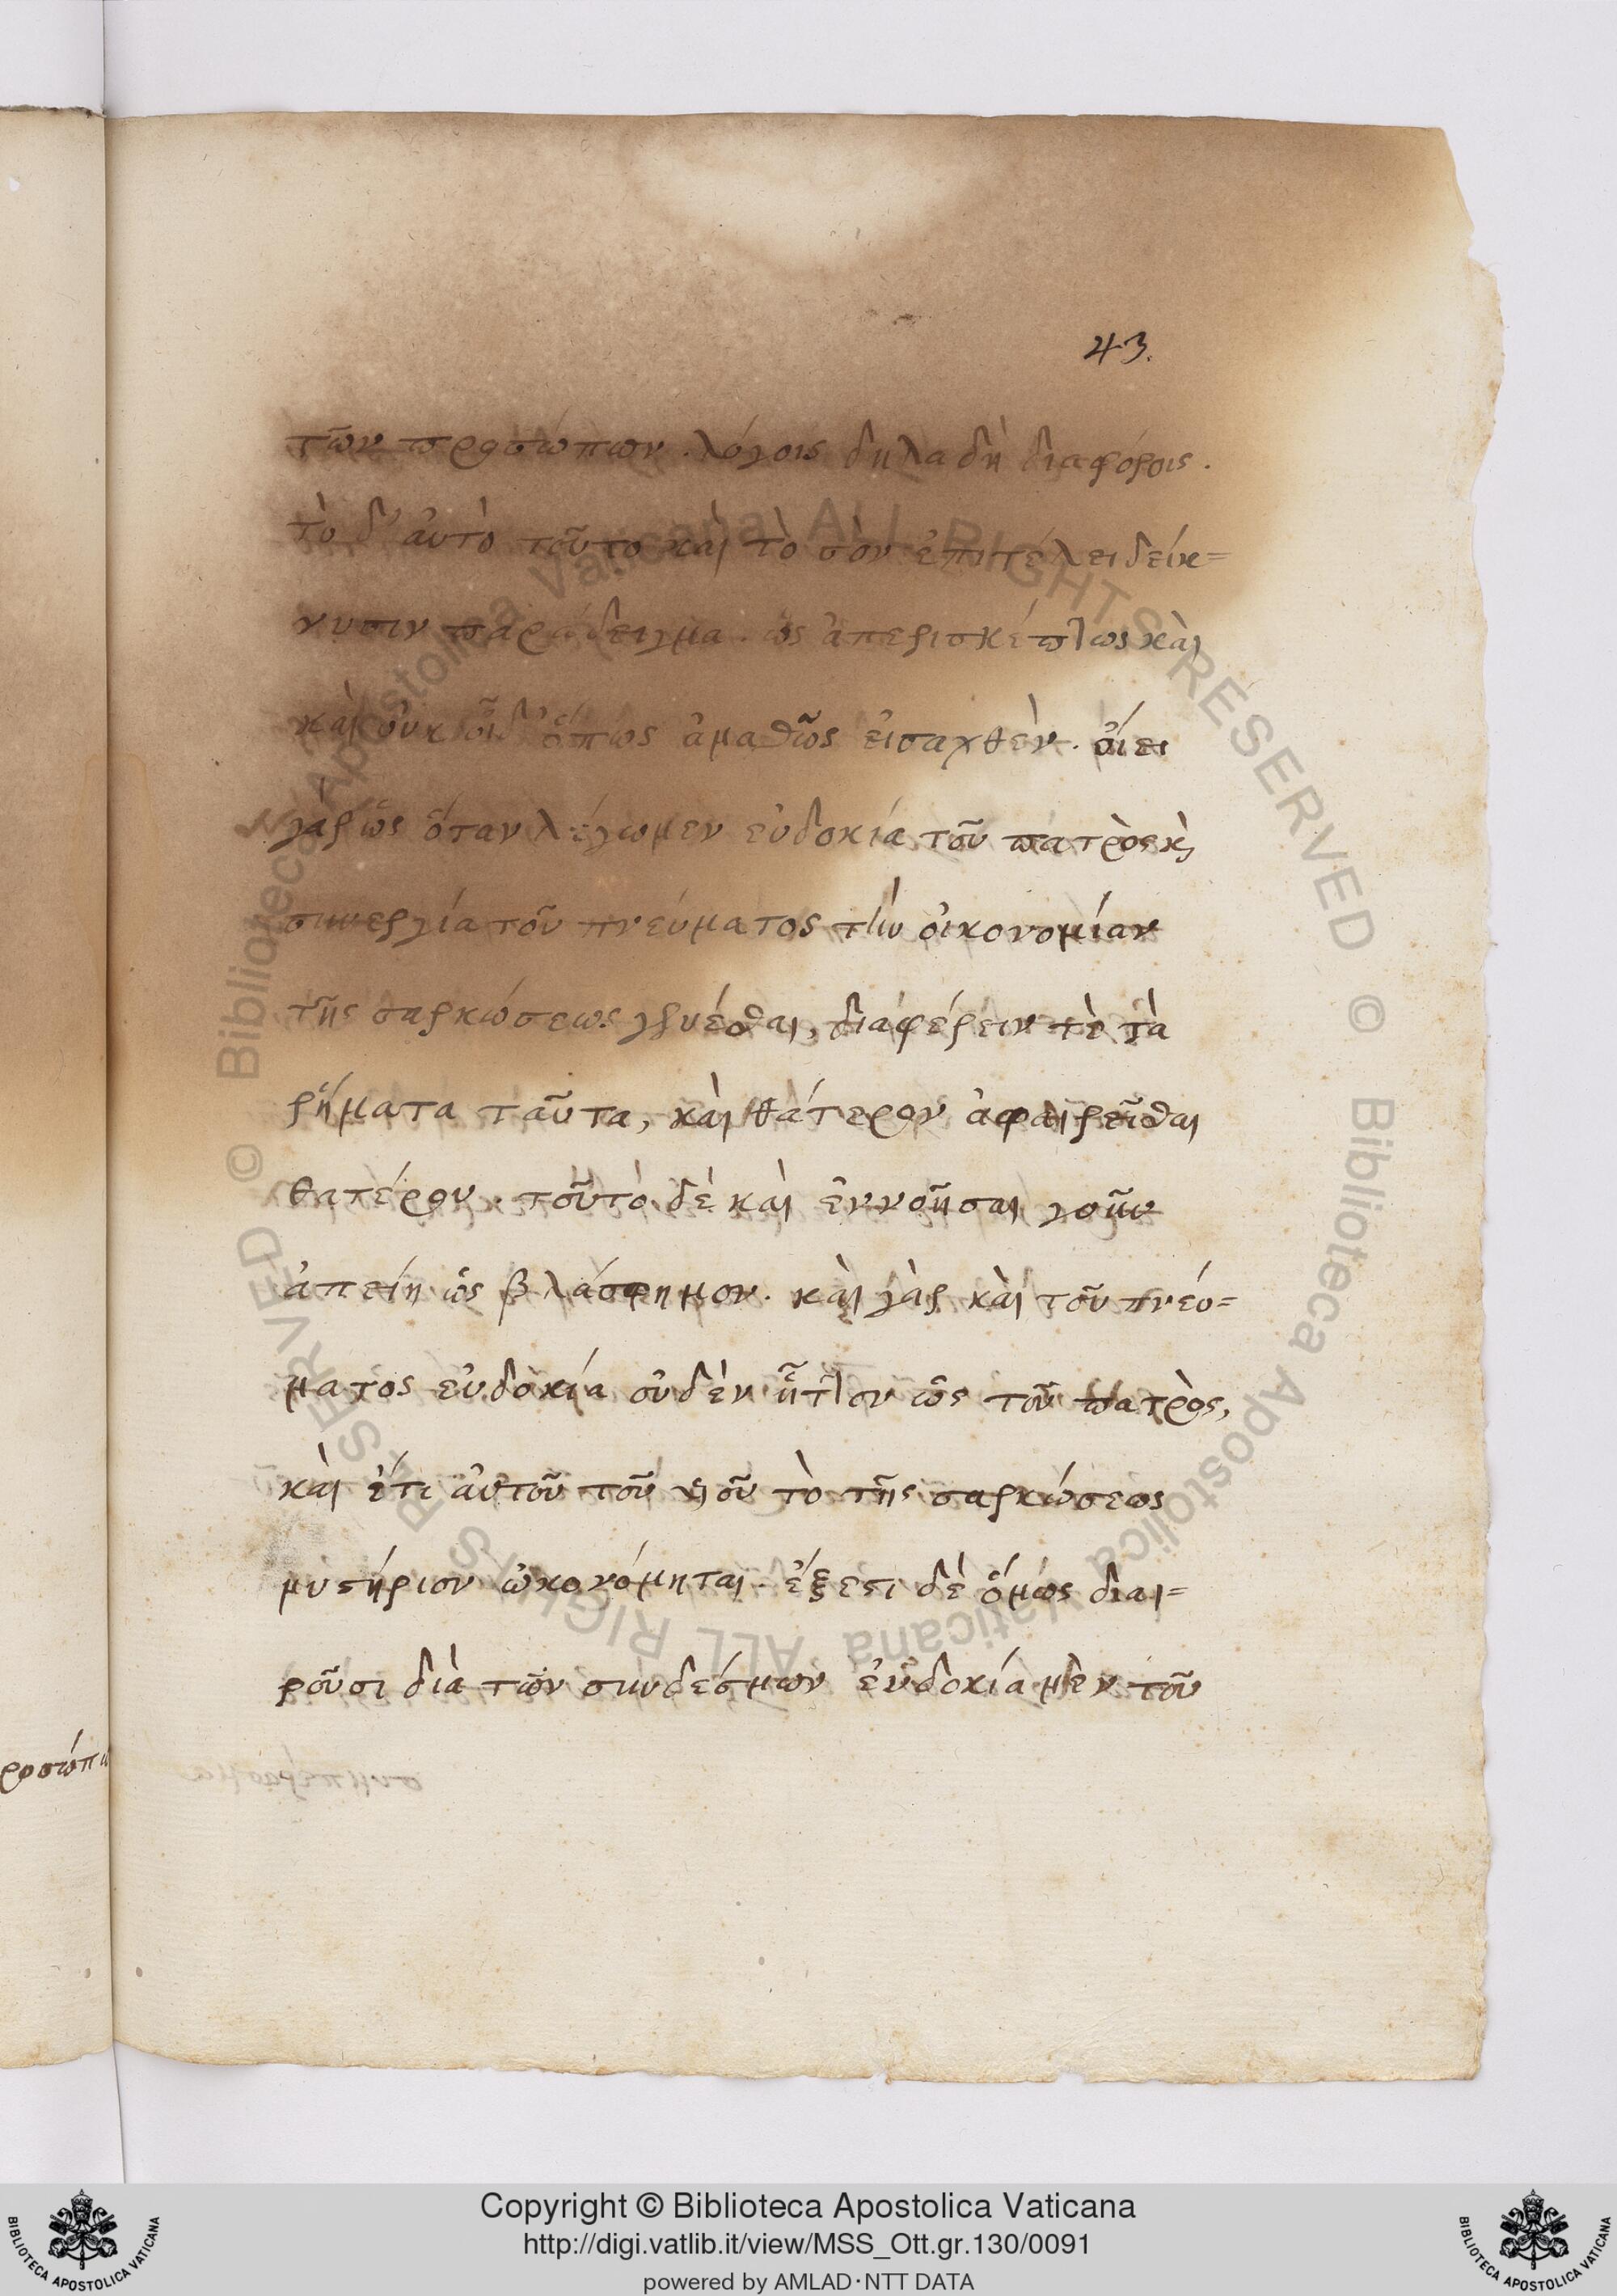 43.
τῶν προσώπων. λόγοις δηλαδὴ διαφόροις.
τὸ δ' αὐτὸ τοῦτο καὶ τὸ σὸν ἐπιτέλει δείκ=
νυσιν παράδειγμα. ὡς ἀπερισκέπτως καὶ
καὶ οὐκ οἶδ' ὅπως ἀμαθῶς εἰσαχθὲν. οἴει
γὰρ ὡς ὅταν λέγωμεν εὐδοκία τοῦ πατρὸς κ̀
συνεργία τοῦ πνεύματος τὴν οἰκονομίαν
τῆς σαρκώσεως γενέσθαι, διαφέρειν τὲ τὰ
ῥήματα ταῦτα, καὶ θάτερον ἀφαιρεῖσθαι
θατέρου. τοῦτο δὲ καὶ ἐννοῆσαι γοῦν
ἀπείη ὡς βλάσφημον. καὶ γὰρ καὶ τοῦ πνεύ=
ματος εὐδοκία οὐδὲν ἧττον ὡς τοῦ πατρὸς,
καὶ ἔτι αὐτοῦ τοῦ υἱοῦ τὸ τῆς σαρκώσεως
μυστήριον ᾠκονόμηται. ἔξεστι δὲ ὅμως διαι=
ροῦσι διὰ τῶν συνδέσμων εὐδοκία μὲν τοῦ
ροσώπω
© Biblioteca Apostolica Vaticana ALL RIGHTS RESERVED © Biblioteca Apostolica Vaticana ALL RIGHTS RESERVED
BIBLIOTECA APOSTOLICA VATICANA
Copyright © Biblioteca Apostolica Vaticana
http://digi.vatlib.it/view/MSS_Ott.gr.130/0091
powered by AMLAD·NTT DATA
BIBLIOTECA APOSTOLICA VATICANA